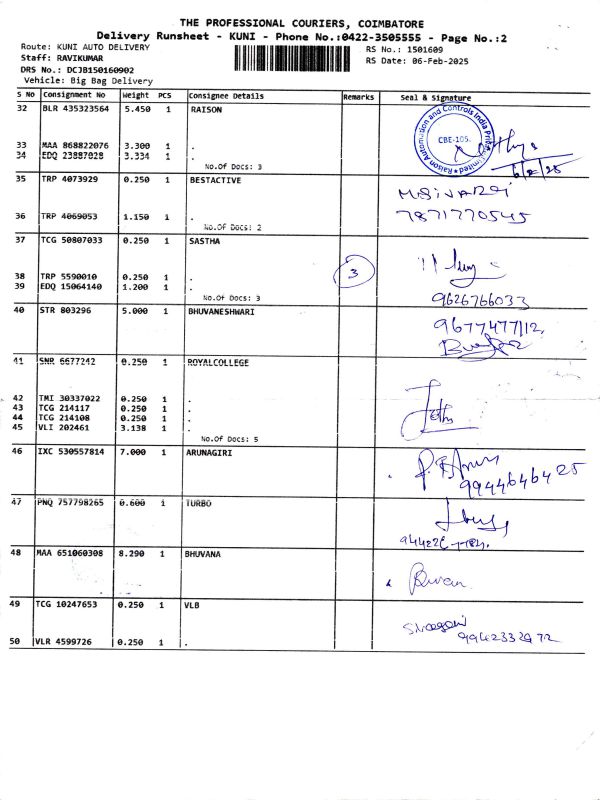 THE PROFESSIONAL COURIERS, COIMBATORE
Delivery Runsheet - KUNI - Phone No.:0422-3505555 - Page No.:2
Route: KUNI AUTO DELIVERY RS No.: 1501609
Staff: RAVIKUMAR RS Date: 06-Feb-2025
DRS No.: DCJB150160902
Vehicle: Big Bag Delivery
S No Consignment No Weight PCS Consignee Details Remarks Seal & Signature
32 BLR 435323564 5.450 1 RAISON
Raison Automation and Controls India Private Limited
CBE-105.
33 MAA 868822076 3.300 1 .
34 EDQ 23887028 3.334 1 .
6/2/25
No.Of Docs: 3
35 TRP 4073929 0.250 1 BESTACTIVE
M.SIVARAJ
7871770545
36 TRP 4069053 1.150 1 .
No.Of Docs: 2
37 TCG 50807033 0.250 1 SASTHA
3
38 TRP 5590010 0.250 1 .
39 EDQ 15064140 1.200 1 .
No.Of Docs: 3
9626766033
40 STR 803296 5.000 1 BHUVANESHWARI
9677477112.
41 SNR 6677242 0.250 1 ROYALCOLLEGE
42 TMI 30337022 0.250 1 .
43 TCG 214117 0.250 1 .
44 TCG 214108 0.250 1 .
45 VLI 202461 3.138 1 .
No.Of Docs: 5
46 IXC 530557814 7.000 1 ARUNAGIRI
9944646425
47 PNQ 757798265 0.600 1 TURBO
48 MAA 651060308 8.290 1 BHUVANA
49 TCG 10247653 0.250 1 VLB
50 VLR 4599726 0.250 1 .